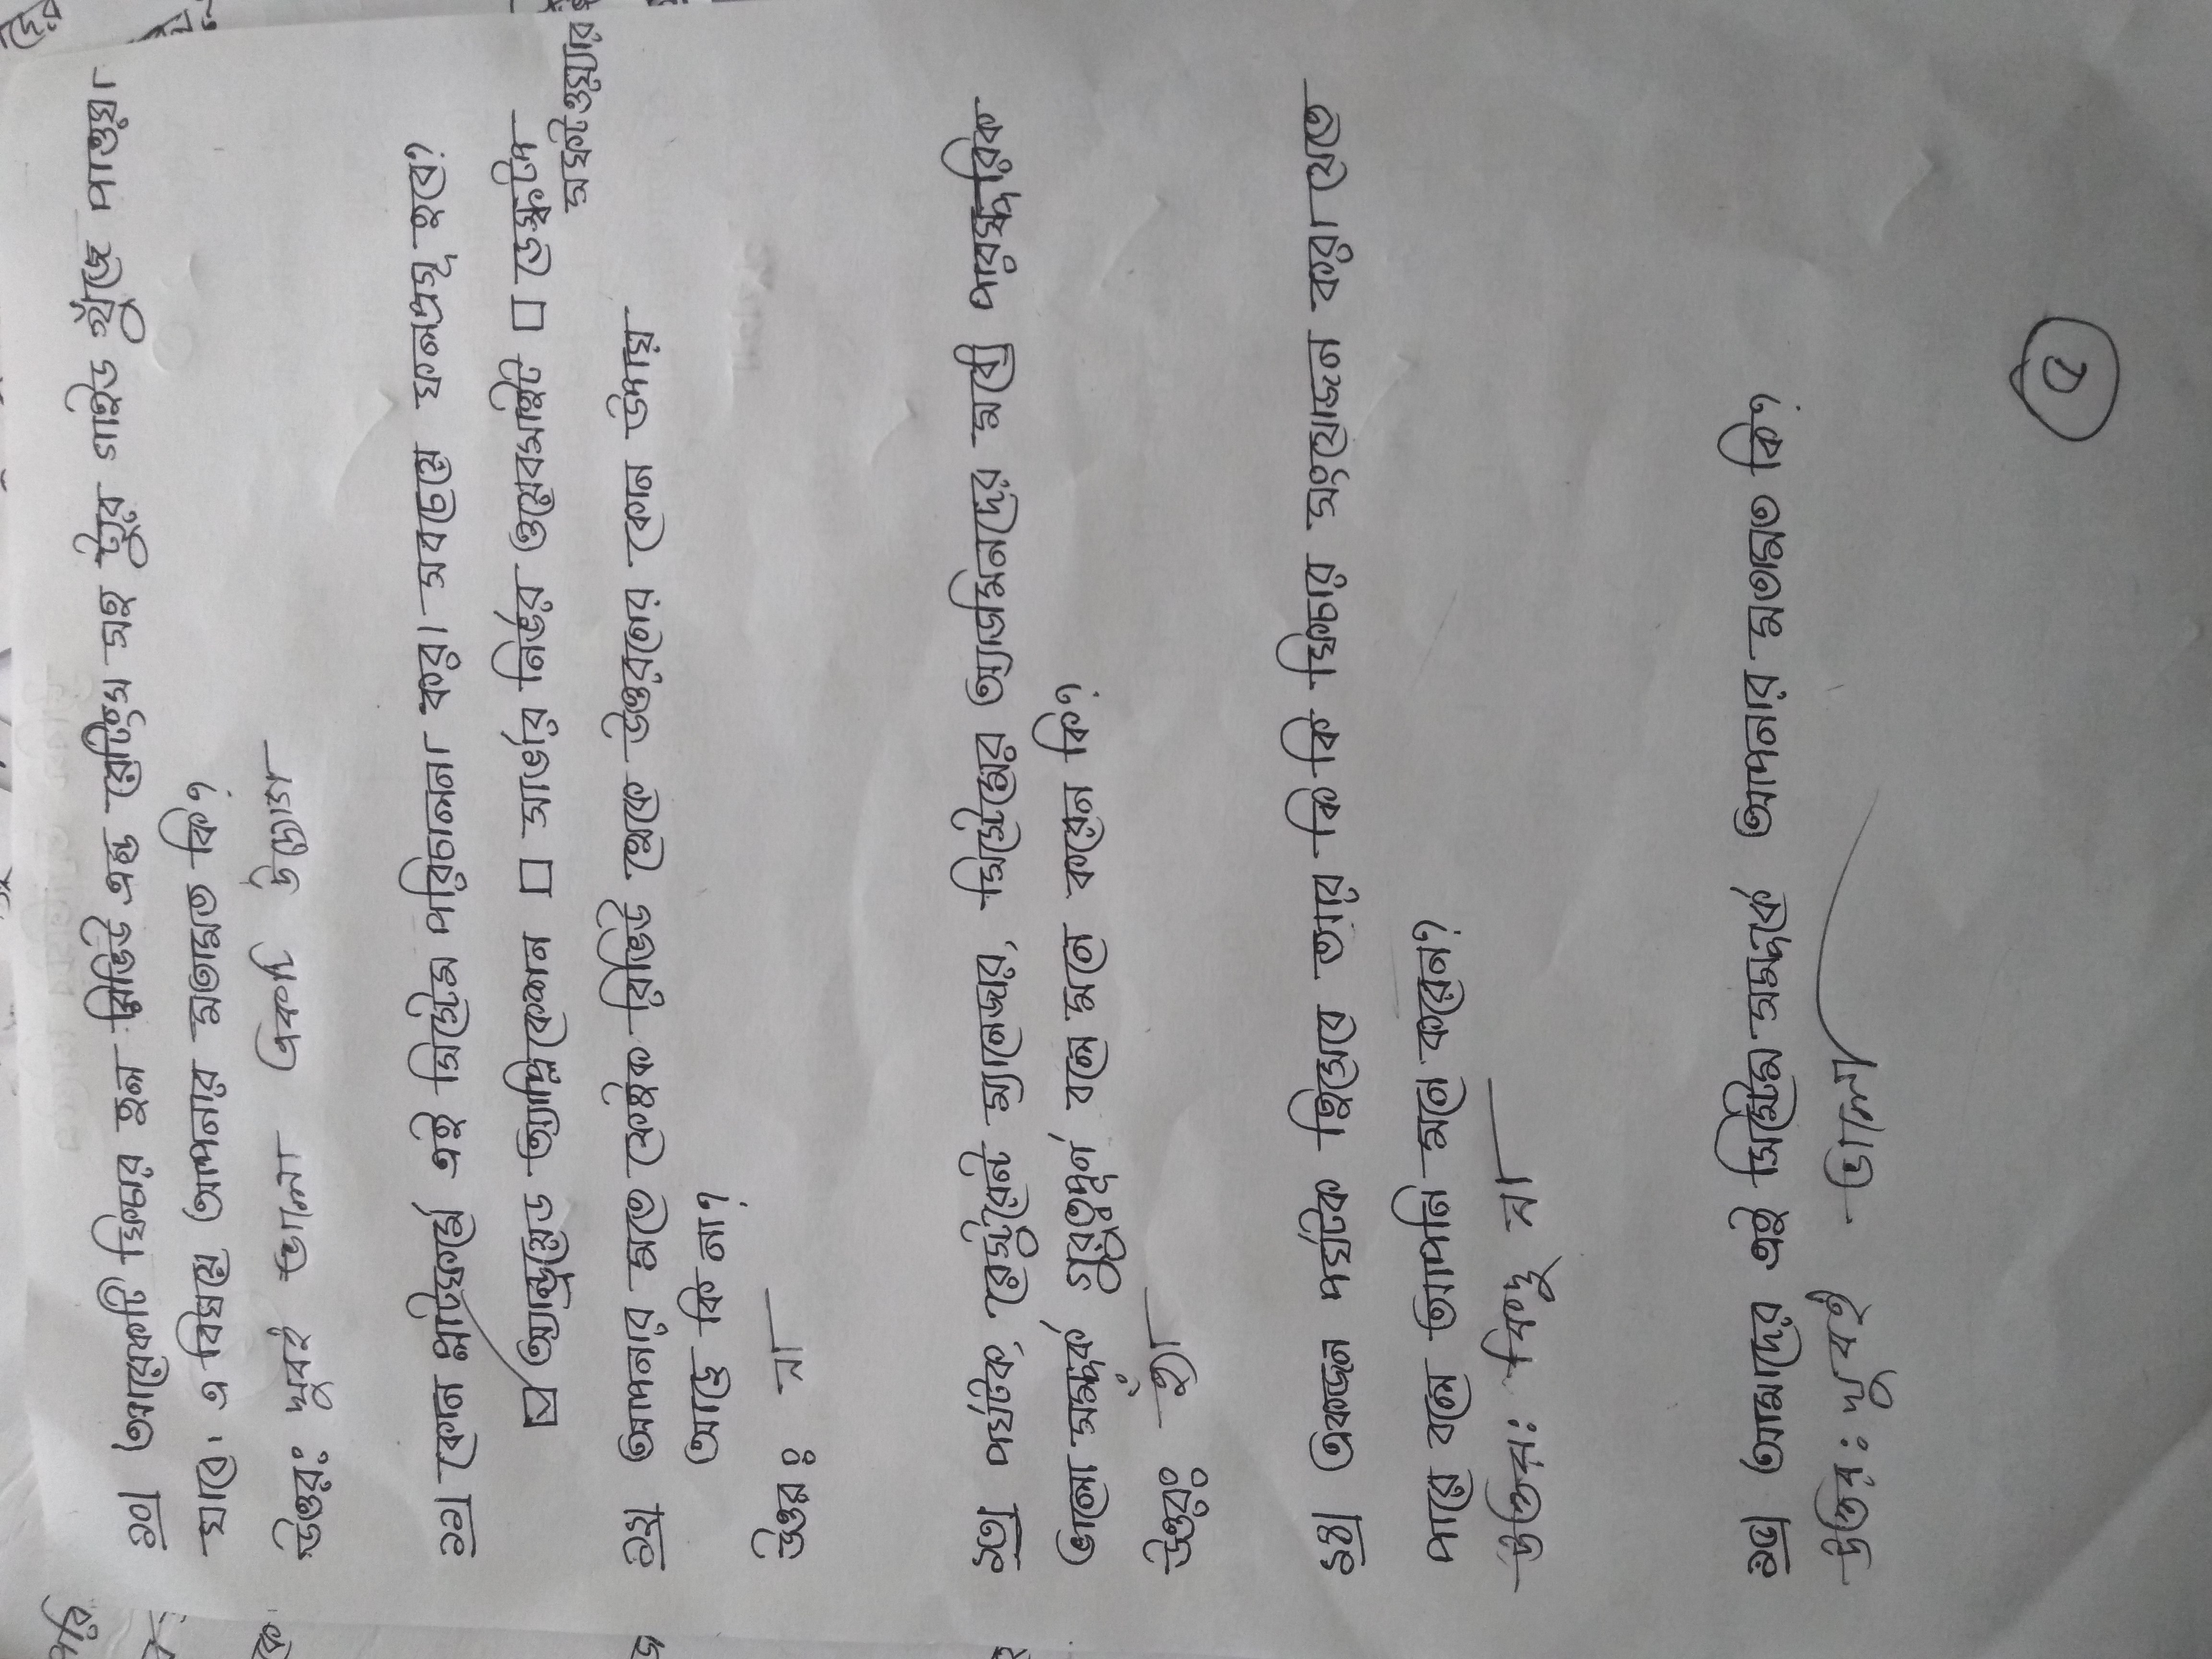 ১০| আরেকটি ফিচার হল রিভিউ এন্ড রেটিংস সহ ট্যুর গাইড খুঁজে পাওয়া
যাবে। এ বিষয়ে আপনার মতামত কি?
উত্তরঃ খুবই ভালো একটা উদ্যোগ
১১| কোন প্লাটফর্মে এই সিস্টেম পরিচালনা করা সবচেয়ে ফলপ্রসূ হবে?
☑ অ্যান্ড্রয়েড অ্যাপ্লিকেশন □ সার্ভার নির্ভর ওয়েবসাইট □ ডেস্কটপ
সফটওয়্যার
১২| আপনার মতে ফেইক রিভিউ থেকে উত্তরনের কোন উপায়
আছে কি না?
উত্তরঃ না
১৩| পর্যটক, রেস্টুরেন্ট ম্যানেজার, সিস্টেমের অ্যাডমিনদের মধ্যে পারস্পরিক
ভালো সম্পর্ক গুরুত্বপূর্ণ বলে মনে করেন কি?
উত্তরঃ হ্যাঁ
১৪| একজন পর্যটক হিসেবে আর কি কি ফিচার সংযোজন করা যেতে
পারে বলে আপনি মনে করেন?
উত্তর: কিছু না
১৫| আমাদের এই সিস্টেম সম্পর্কে আপনার মতামত কি?
উত্তর: খুবই ভালো
৫